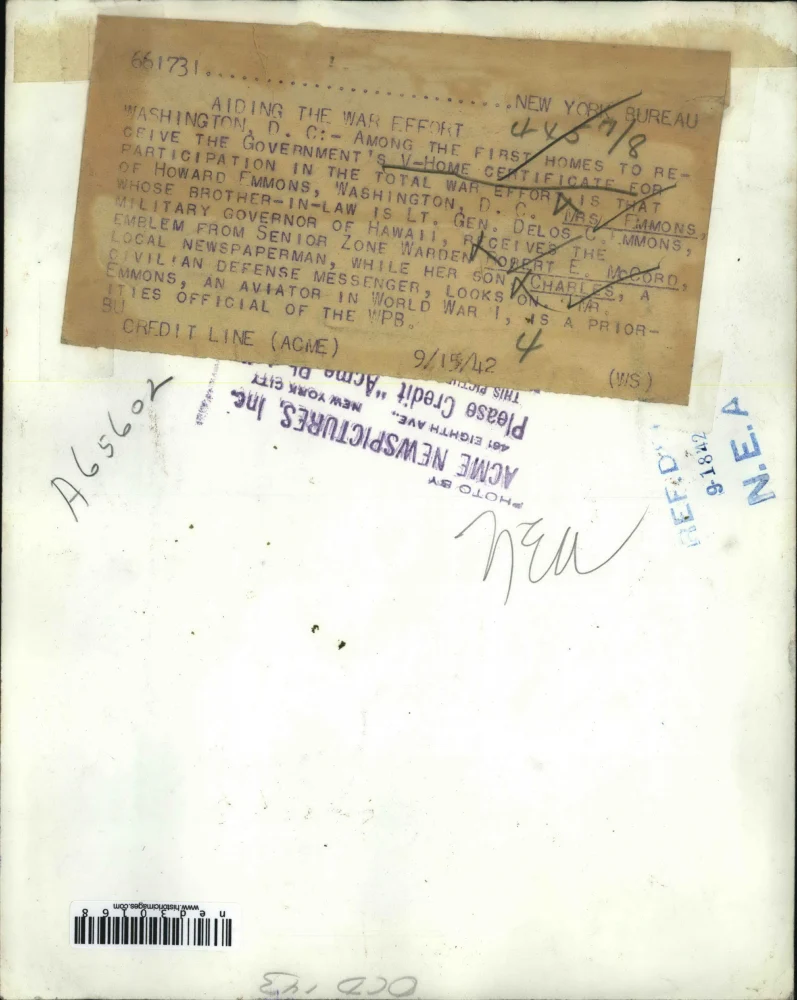 661731.............................NEW YORK BUREAU
445 M/8
AIDING THE WAR EFFORT
WASHINGTON, D. C:- AMONG THE FIRST HOMES TO RE-
CEIVE THE GOVERNMENT'S V-HOME CERTIFICATE FOR
PARTICIPATION IN THE TOTAL WAR EFFORT IS THAT
OF HOWARD EMMONS, WASHINGTON, D. C. MRS. EMMONS,
WHOSE BROTHER-IN-LAW IS LT. GEN. DELOS C. EMMONS,
MILITARY GOVERNOR OF HAWAII, RECEIVES THE
EMBLEM FROM SENIOR ZONE WARDEN ROBERT E. McCORD,
LOCAL NEWSPAPERMAN, WHILE HER SON CHARLES, A
CIVILIAN DEFENSE MESSENGER, LOOKS ON. MR.
EMMONS, AN AVIATOR IN WORLD WAR I, IS A PRIOR-
ITIES OFFICIAL OF THE WPB.
BU
4
CREDIT LINE (ACME) 9/15/42 (WS)
A65602
PHOTO BY
ACME NEWSPICTURES, Inc.
461 EIGHTH AVE., NEW YORK CITY
Please Credit "Acme
THIS
REF. D
9-18 42
N.E.A
NEA
ned30168
www.historicimages.com
OCD 143